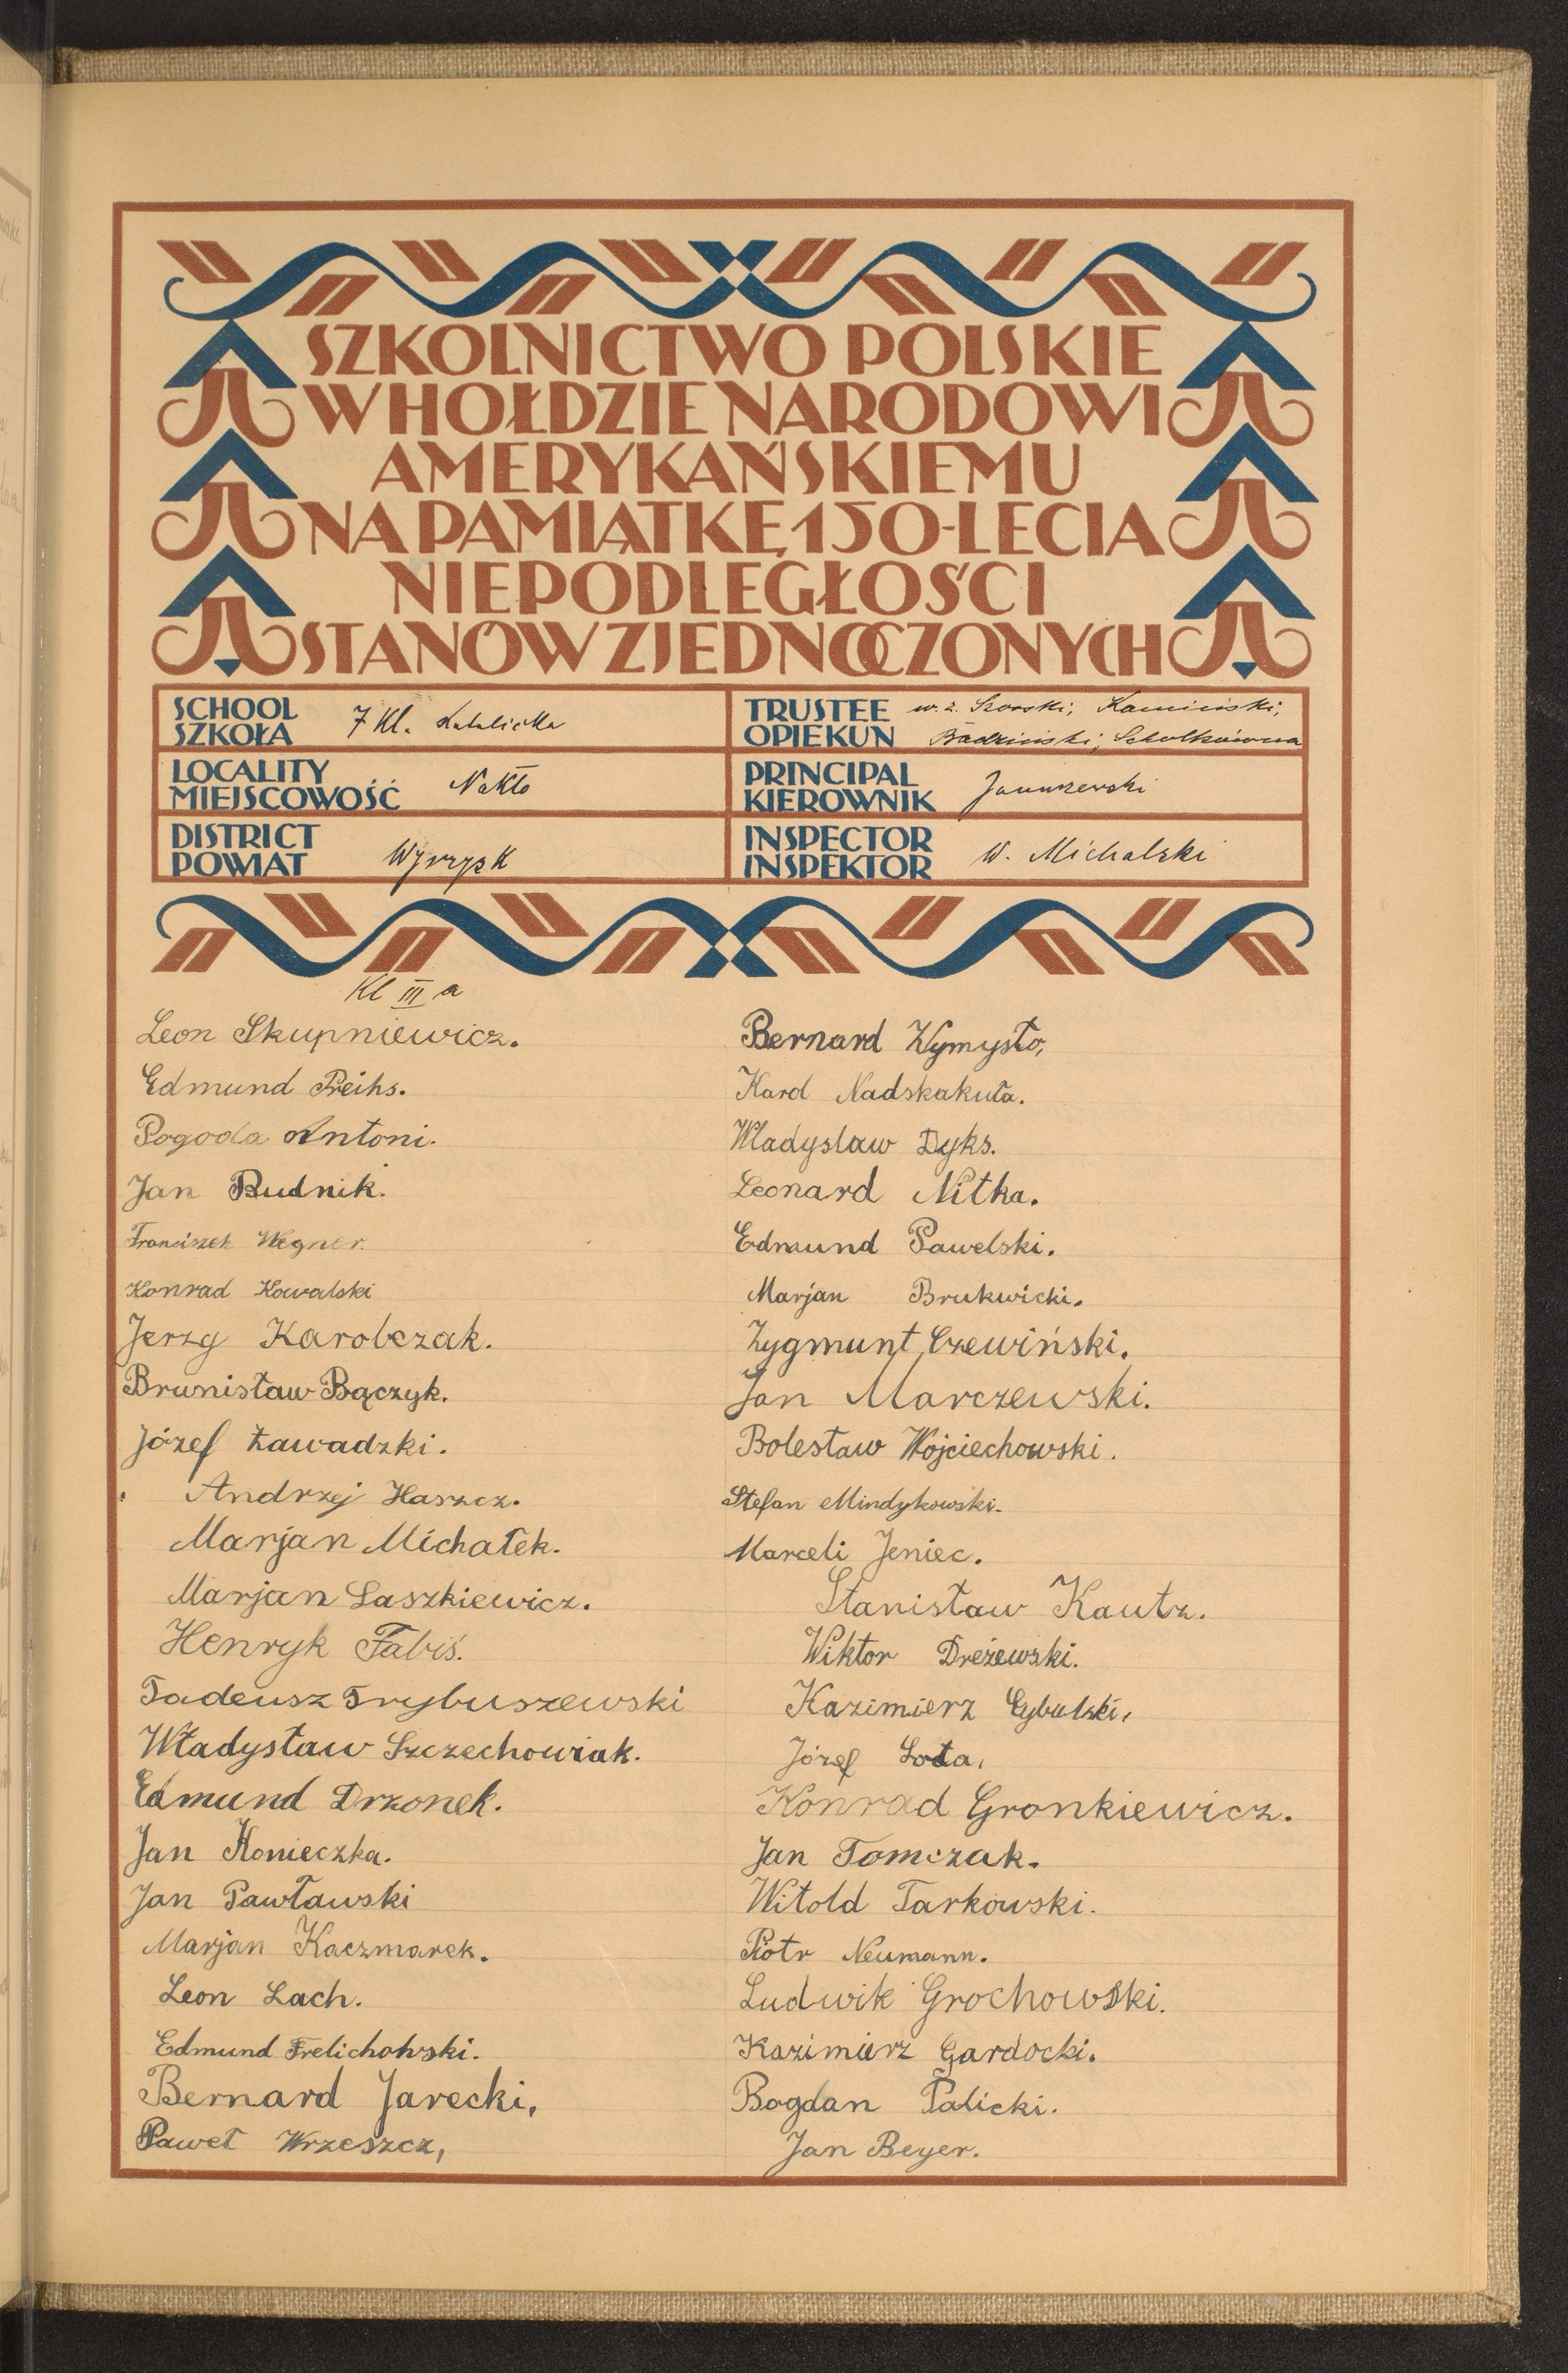 SZKOLNICTWO POLSKIE
W HOŁDZIE NARODOWI
AMERYKAŃSKIEMU
NA PAMIĄTKĘ 150-LECIA
NIEPODLEGŁOŚCI
STANÓW ZJEDNOCZONYCH
SCHOOL
SZKOŁA
7 Kl. Katolicka
TRUSTEE
OPIEKUN
Kamiński,
LOCALITY
MIEJSCOWOŚĆ
Nakło
PRINCIPAL
KIEROWNIK
Januszewski
DISTRICT
POWIAT
Wyrzysk
INSPECTOR
INSPEKTOR
W. Michalski
Kl III a
Leon Skupniewicz.
Edmund Preihs.
Pogoda Antoni.
Jan Budnik.
Franciszek Wegner.
Konrad Kowalski
Jerzy Karolczak.
Brunisław Bączyk.
Józef Zawadzki.
Andrzej Haszcz.
Marjan Michałek.
Marjan Laszkiewicz.
Henryk Fabiś.
Tadeusz Trybuszewski
Władysław Szczechowiak.
Edmund Drzonek.
Jan Konieczka.
Jan Pawławski
Marjan Kaczmarek.
Leon Lach.
Edmund Frelichowski.
Bernard Jarecki,
Paweł Wrzeszcz,
Bernard Wymysło,
Karol Nadskakuła.
Wladyslaw Dyks.
Leonard Nitka.
Edmund Pawelski.
Marjan Brukwicki.
Zygmunt Czewiński.
Jan Marczewski.
Bolesław Wojciechowski.
Stefan Mindykowski.
Marceli Jeniec.
Stanisław Kautz.
Wiktor Dreżewski.
Kazimierz Cybulski,
Józef Lota,
Konrad Gronkiewicz.
Jan Tomczak.
Witold Tarkowski.
Piotr Neumann.
Ludwik Grochowski.
Kazimierz Gardocki.
Bogdan Palicki.
Jan Beyer.